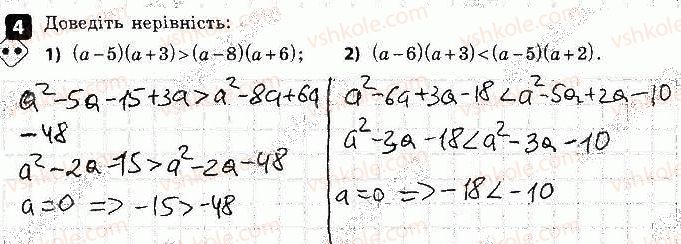 4 Доведіть нерівність:
1) (a−5)(a+3)>(a−8)(a+6);
2) (a−6)(a+3)<(a−5)(a+2).
a²−5a−15+3a>a²−8a+6a
−48
a²−2a−15>a²−2a−48
a=0 => −15>−48
a²−6a+3a−18<a²−5a+2a−10
a²−3a−18<a²−3a−10
a=0 => −18<−10